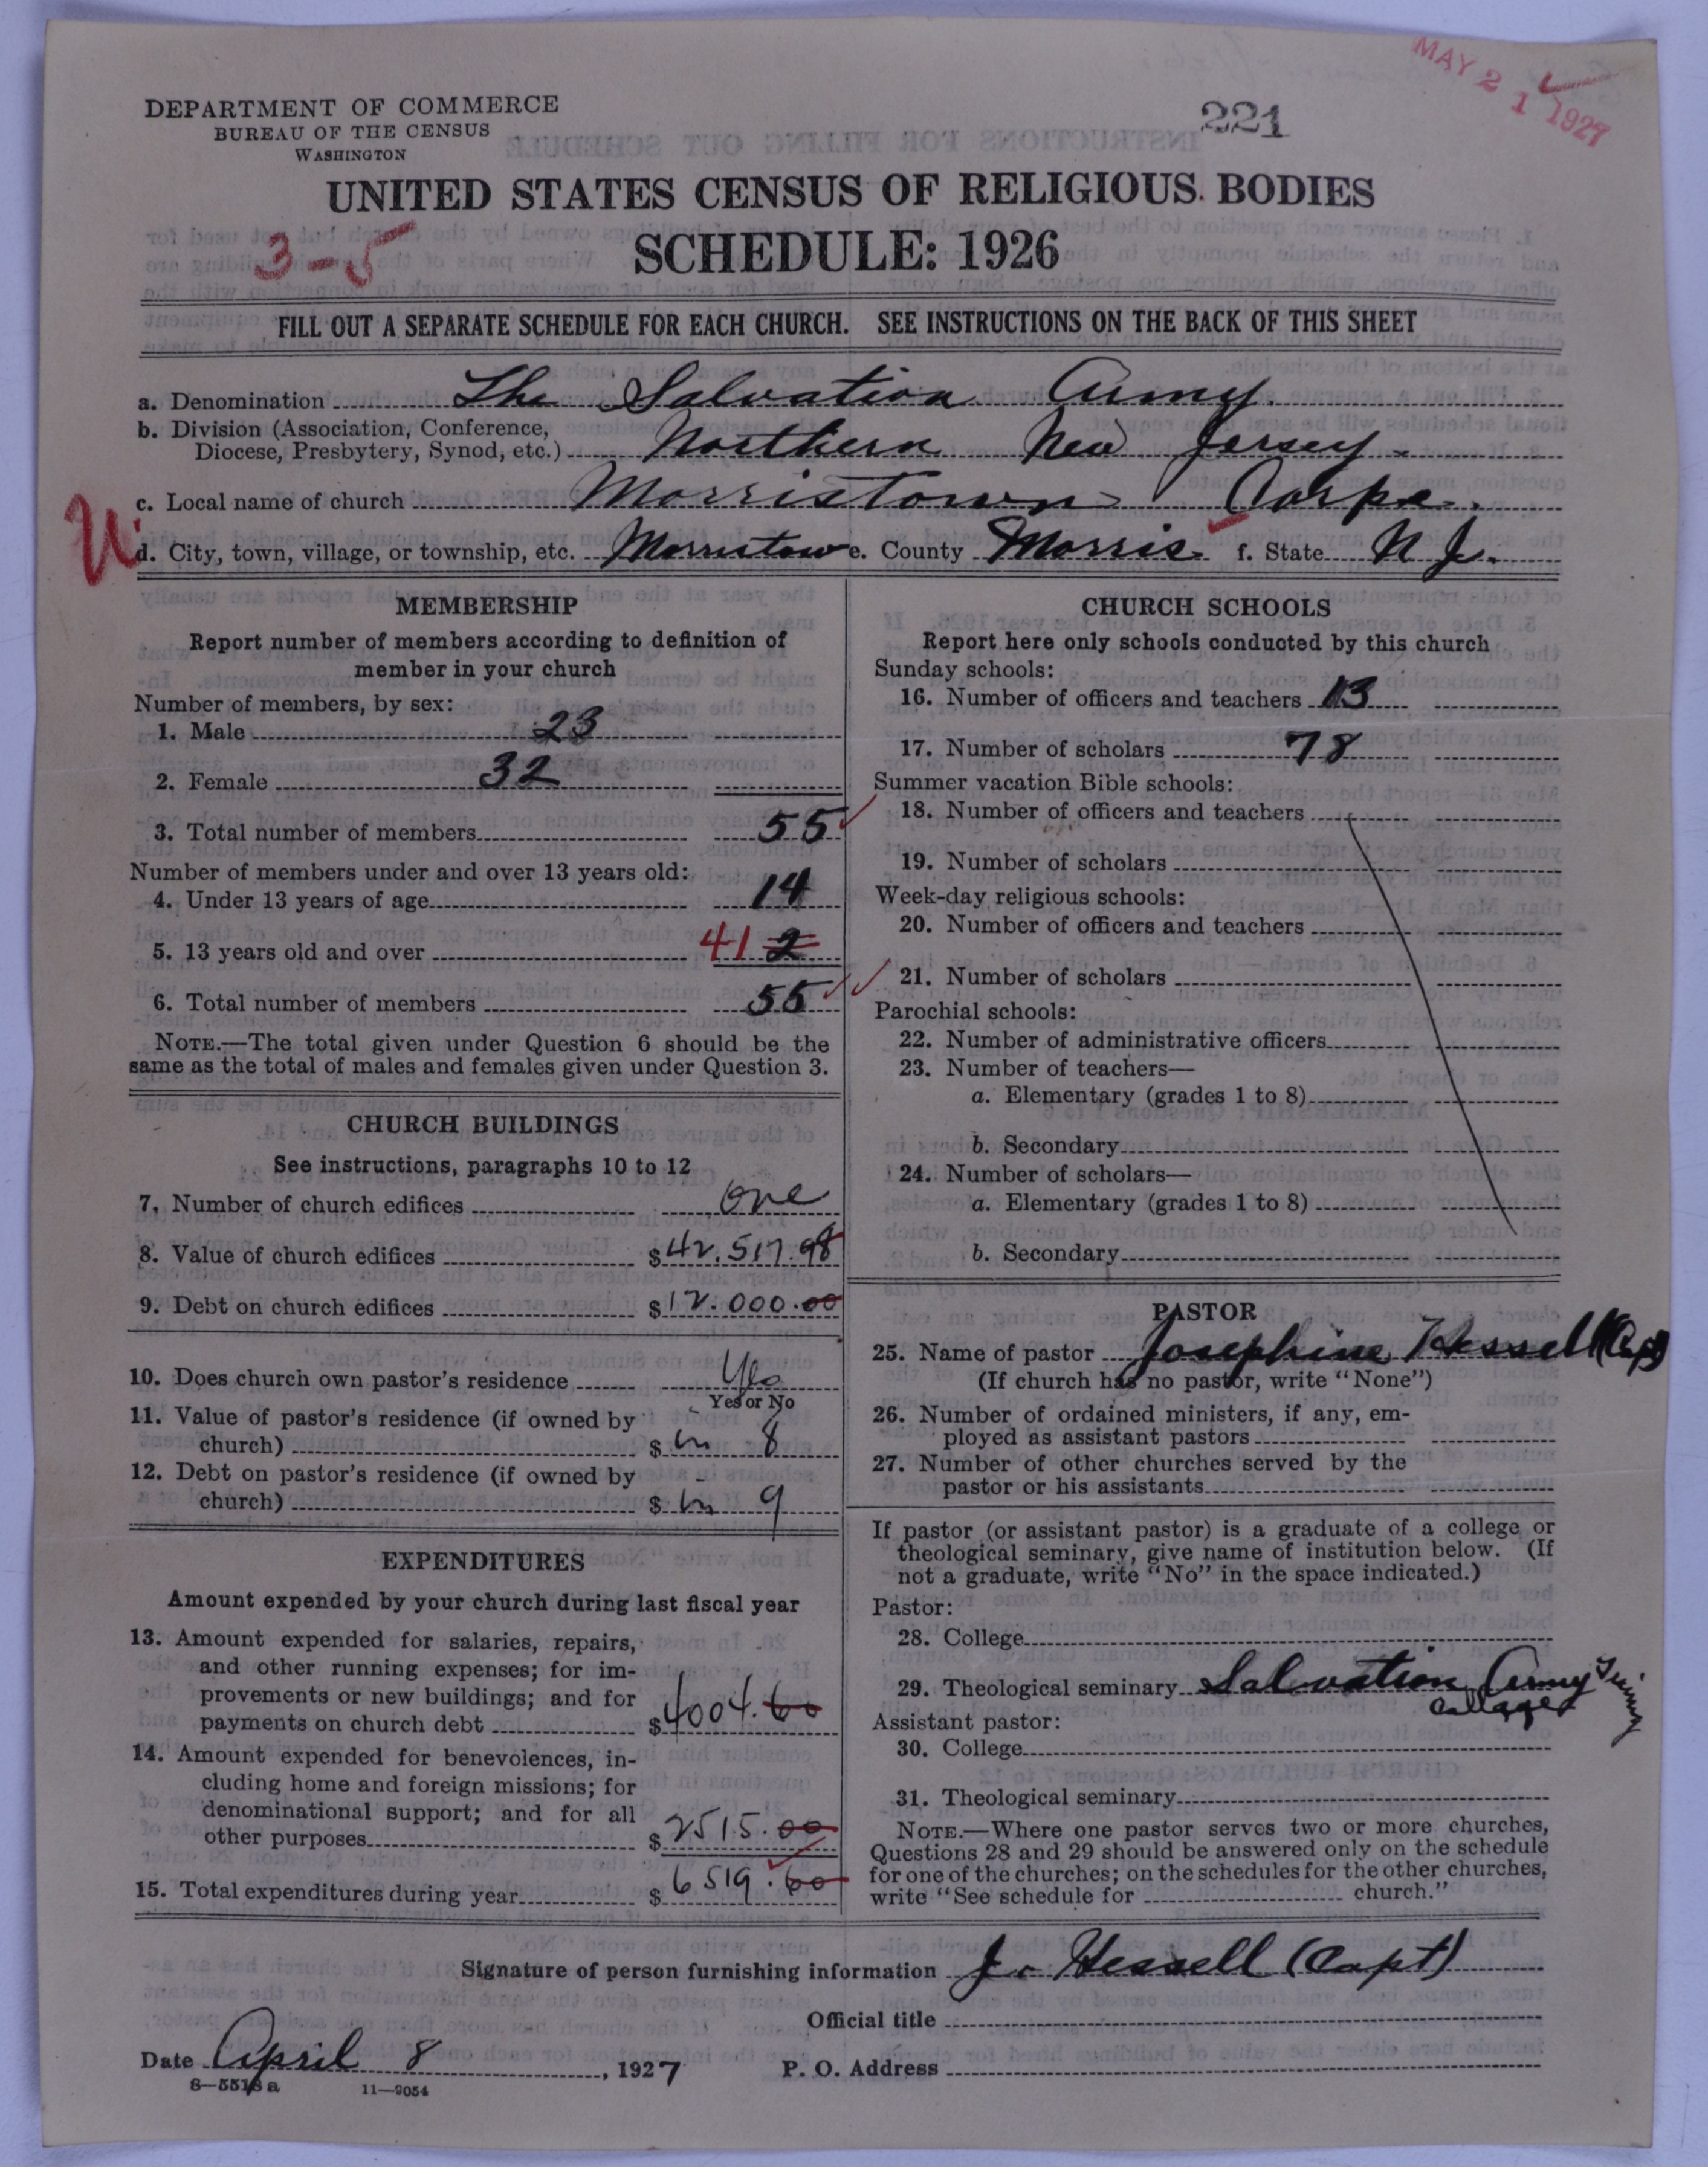 MAY 2 1 1927
DEPARTMENT OF COMMERCE
BUREAU OF THE CENSUS
WASHINGTON
221
UNITED STATES CENSUS OF RELIGIOUS BODIES
3-5
SCHEDULE: 1926
FILL OUT A SEPARATE SCHEDULE FOR EACH CHURCH. SEE INSTRUCTIONS ON THE BACK OF THIS SHEET
a. Denomination The Salvation Army.
b. Division (Association, Conference,
Diocese, Presbytery, Synod, etc.) Northern New Jersey.
c. Local name of church Morristown Corps.
d. City, town, village, or township, etc. Morristown e. County Morris f. State N J.
MEMBERSHIP
Report number of members according to definition of
member in your church
Number of members, by sex:
1. Male 23
2. Female 32
3. Total number of members 55
Number of members under and over 13 years old:
4. Under 13 years of age 14
5. 13 years old and over 41 2
6. Total number of members 55
NOTE.—The total given under Question 6 should be the
same as the total of males and females given under Question 3.
CHURCH BUILDINGS
See instructions, paragraphs 10 to 12
7. Number of church edifices One
8. Value of church edifices $42.517.98
9. Debt on church edifices $12.000.00
10. Does church own pastor's residence Yes
Yes or No
11. Value of pastor's residence (if owned by
church) $ in 8
12. Debt on pastor's residence (if owned by
church) $ in 9
EXPENDITURES
Amount expended by your church during last fiscal year
13. Amount expended for salaries, repairs,
and other running expenses; for im-
provements or new buildings; and for
payments on church debt $4004.60
14. Amount expended for benevolences, in-
cluding home and foreign missions; for
denominational support; and for all
other purposes $2515.00
15. Total expenditures during year $6519.60
CHURCH SCHOOLS
Report here only schools conducted by this church
Sunday schools:
16. Number of officers and teachers 13
17. Number of scholars 78
Summer vacation Bible schools:
18. Number of officers and teachers
19. Number of scholars
Week-day religious schools:
20. Number of officers and teachers
21. Number of scholars
Parochial schools:
22. Number of administrative officers
23. Number of teachers—
a. Elementary (grades 1 to 8)
b. Secondary
24. Number of scholars—
a. Elementary (grades 1 to 8)
b. Secondary
PASTOR
25. Name of pastor Josephine Hessell (Capt)
(If church has no pastor, write "None")
26. Number of ordained ministers, if any, em-
ployed as assistant pastors
27. Number of other churches served by the
pastor or his assistants
If pastor (or assistant pastor) is a graduate of a college or
theological seminary, give name of institution below. (If
not a graduate, write "No" in the space indicated.)
Pastor:
28. College
29. Theological seminary Salvation Army
College
Assistant pastor:
30. College
31. Theological seminary
NOTE.—Where one pastor serves two or more churches,
Questions 28 and 29 should be answered only on the schedule
for one of the churches; on the schedules for the other churches,
write "See schedule for church."
Signature of person furnishing information J. Hessell (Capt)
Official title
Date April 8, 1927 P. O. Address
8—5518 a 11—9054